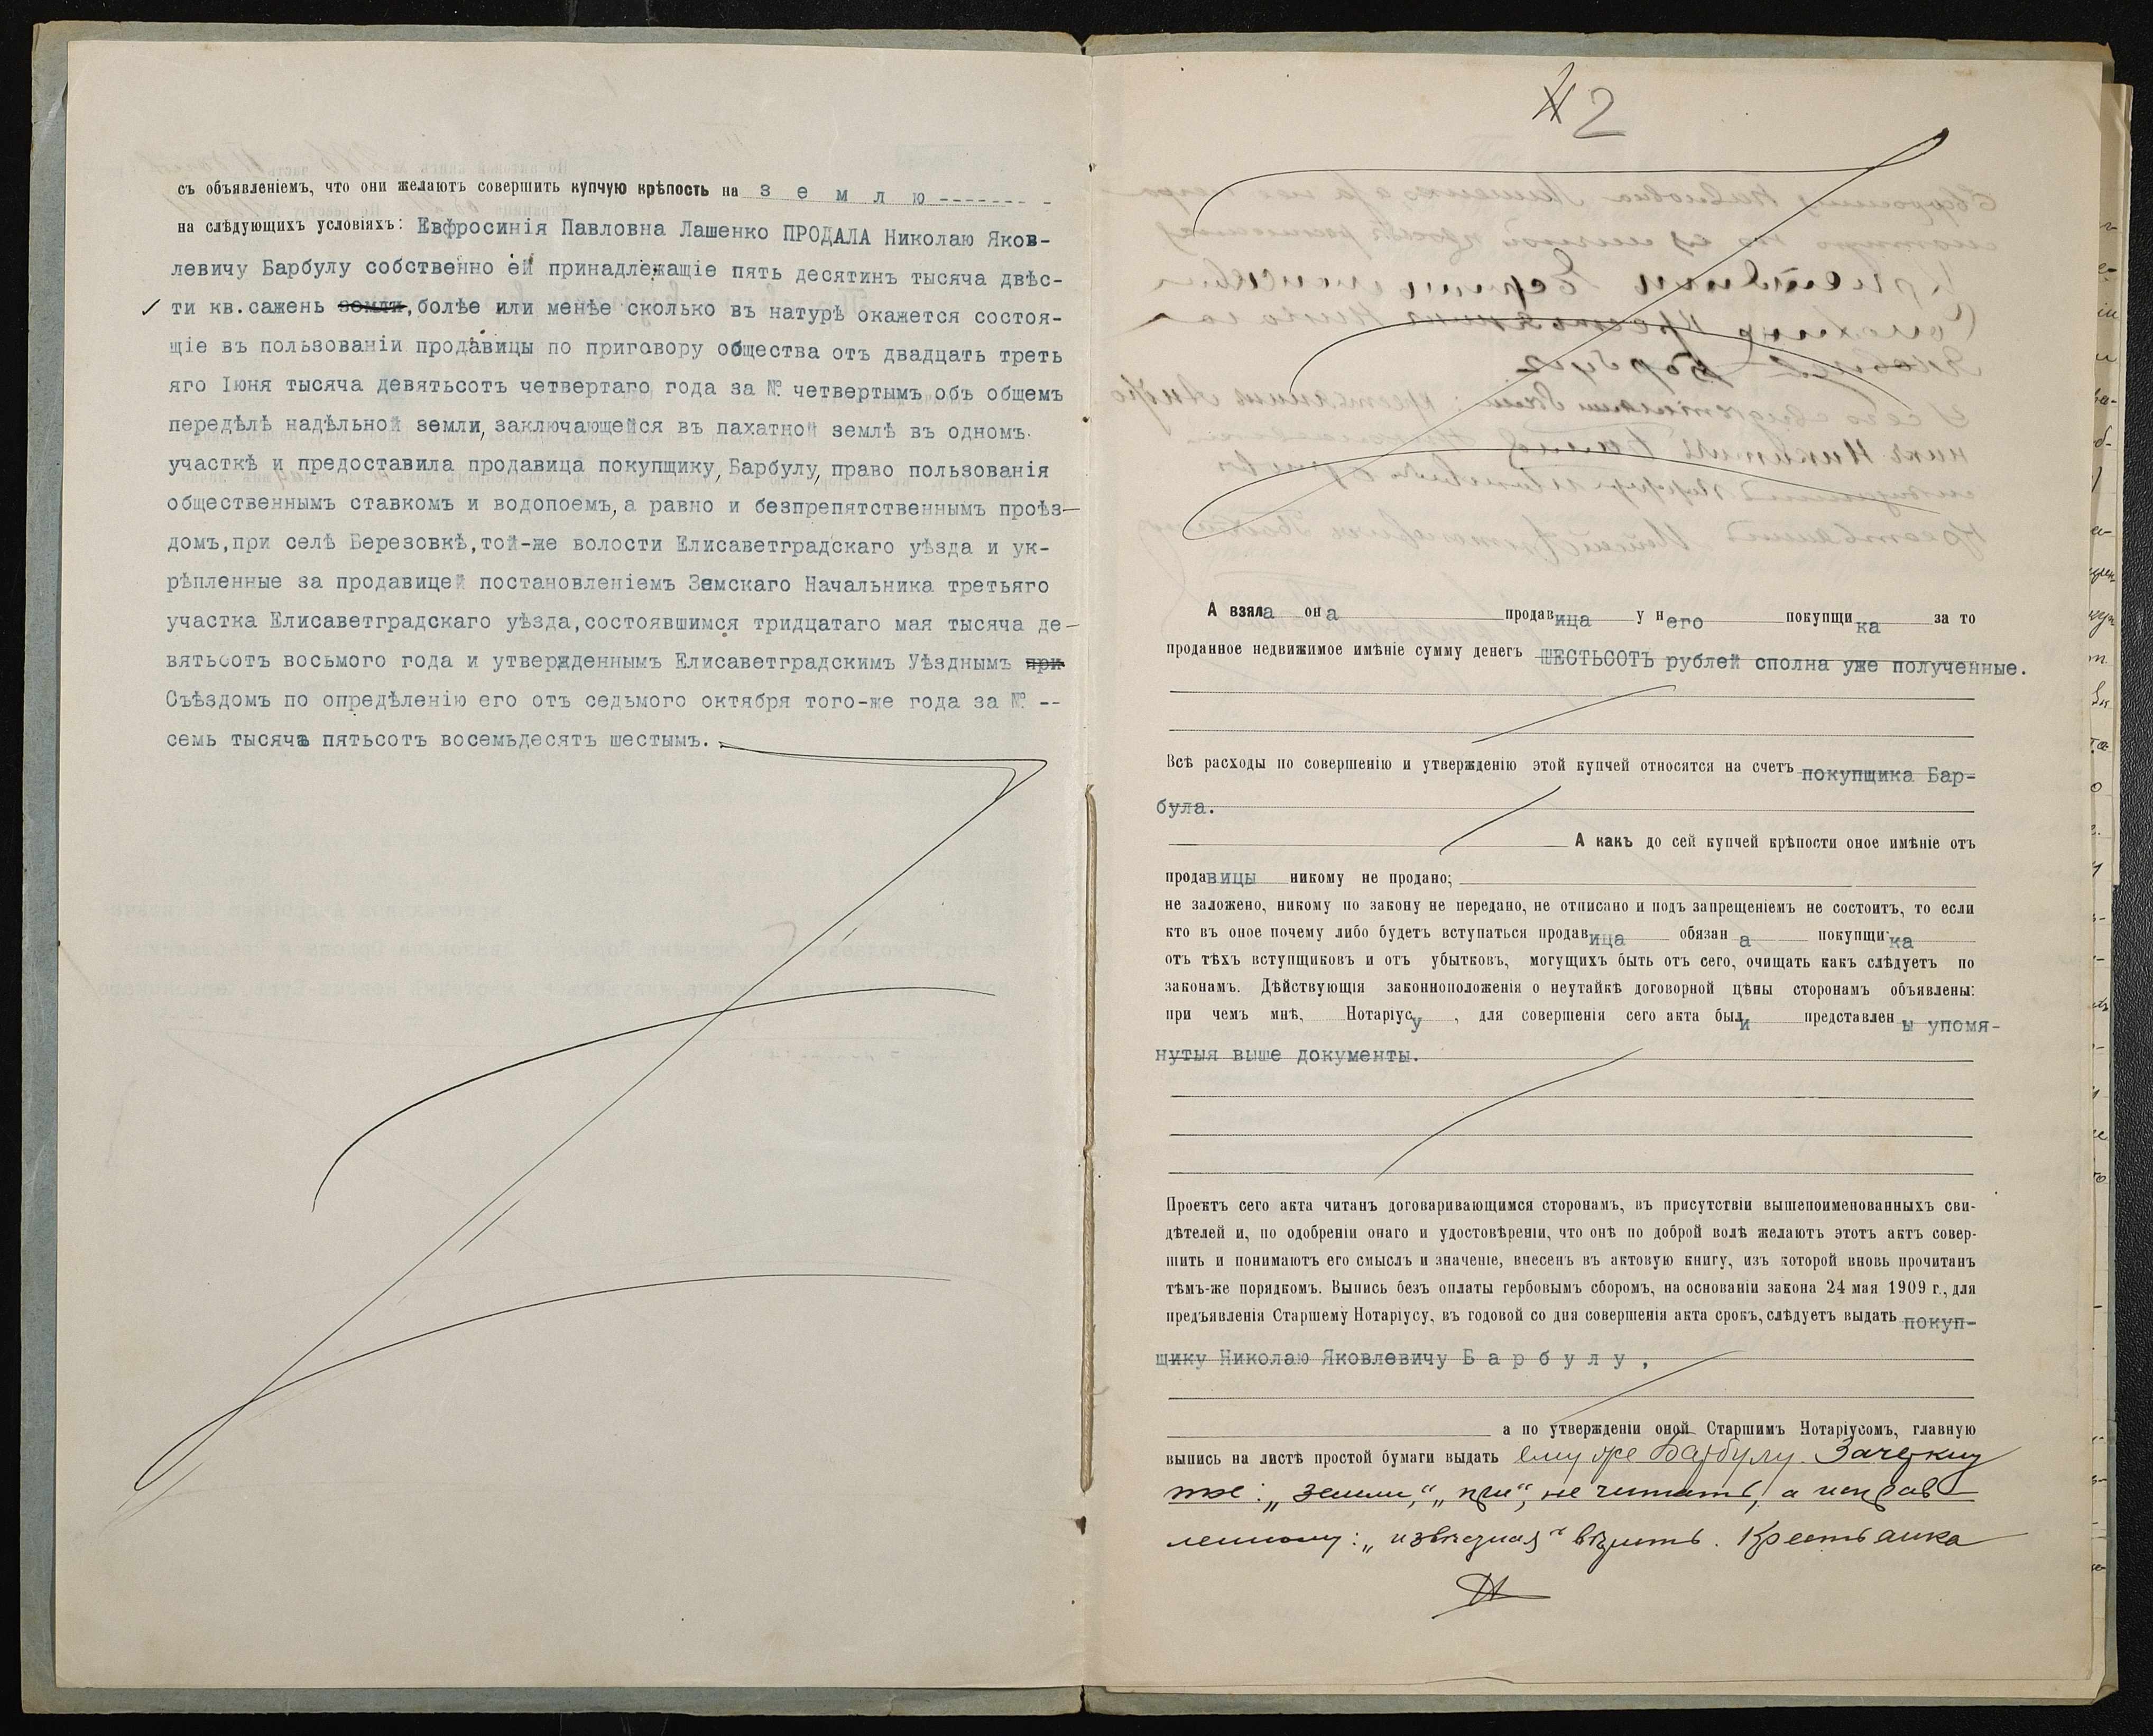 съ объявленіемъ, что они желаютъ совершить купчую крѣпость на з е м л ю -------- -
на слѣдующихъ условіяхъ: Евфросинія Павловна Лашенко ПРОДАЛА Николаю Яков-
левичу Барбулу собственно ей принадлежащіе пять десятинъ тысяча двѣс-
ти кв.сажень земли, болѣе или менѣе сколько въ натурѣ окажется состоя-
щіе въ пользованіи продавицы по приговору общества отъ двадцать треть
яго Іюня тысяча девятьсотъ четвертаго года за № четвертымъ объ общемъ
передѣлѣ надѣльной земли, заключающейся въ пахатной землѣ въ одномъ
участкѣ и предоставила продавица покупщику, Барбулу, право пользованія
общественнымъ ставкомъ и водопоемъ, а равно и безпрепятственнымъ проѣз-
домъ, при селѣ Березовкѣ, той-же волости Елисаветградскаго уѣзда и ук-
рѣпленные за продавицей постановленіемъ Земскаго Начальника третьяго
участка Елисаветградскаго уѣзда, состоявшимся тридцатаго мая тысяча де-
вятьсотъ восьмого года и утвержденнымъ Елисаветградскимъ Уѣзднымъ при
Съѣздомъ по опредѣленію его отъ седьмого октября того-же года за № --
семь тысячъ пятьсотъ восемьдесятъ шестымъ.
2
А взяла она продавица у него покупщика за то
проданное недвижимое имѣніе сумму денегъ ШЕСТЬСОТЪ рублей сполна уже полученные.
Всѣ расходы по совершенію и утвержденію этой купчей относятся на счетъ покупщика Бар-
була.
А какъ до сей купчей крѣпости оное имѣніе отъ
продавицы никому не продано;
не заложено, никому по закону не передано, не отписано и подъ запрещеніемъ не состоитъ, то если
кто въ оное почему либо будетъ вступаться продавица обязана покупщика
отъ тѣхъ вступщиковъ и отъ убытковъ, могущихъ быть отъ сего, очищать какъ слѣдуетъ по
законамъ. Дѣйствующія законноположенія о неутайкѣ договорной цѣны сторонамъ объявлены:
при чемъ мнѣ, Нотаріусу, для совершенія сего акта были представлены упомя-
нутыя выше документы.
Проектъ сего акта читанъ договаривающимся сторонамъ, въ присутствіи вышепоименованныхъ сви-
дѣтелей и, по одобреніи онаго и удостовѣреніи, что онѣ по доброй волѣ желаютъ этотъ актъ совер-
шить и понимаютъ его смыслъ и значеніе, внесенъ въ актовую книгу, изъ которой вновь прочитанъ
тѣмъ-же порядкомъ. Выпись безъ оплаты гербовымъ сборомъ, на основаніи закона 24 мая 1909 г., для
предъявленія Старшему Нотаріусу, въ годовой со дня совершенія акта срокъ, слѣдуетъ выдать покуп-
щику Николаю Яковлевичу Б а р б у л у ,
а по утвержденіи оной Старшимъ Нотаріусомъ, главную
выпись на листѣ простой бумаги выдать ему же Барбулу. Зачеркну
тое: „земли," „при", не читать, а исправ
ленному: вѣрить. Крестьянка